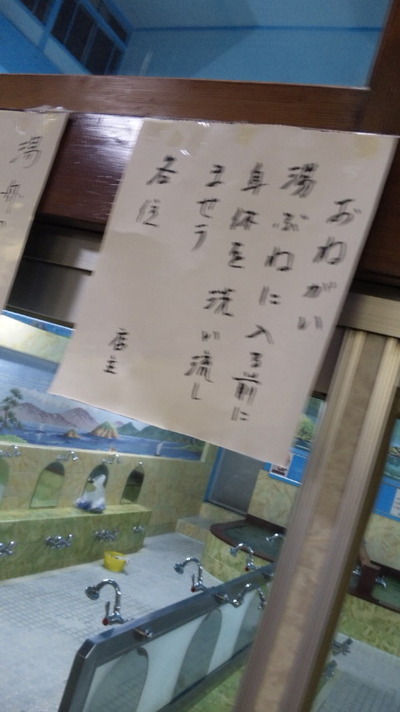 おねがい
湯ぶねに入る前に
身体を洗い流し
ませう
各位
店主
湯